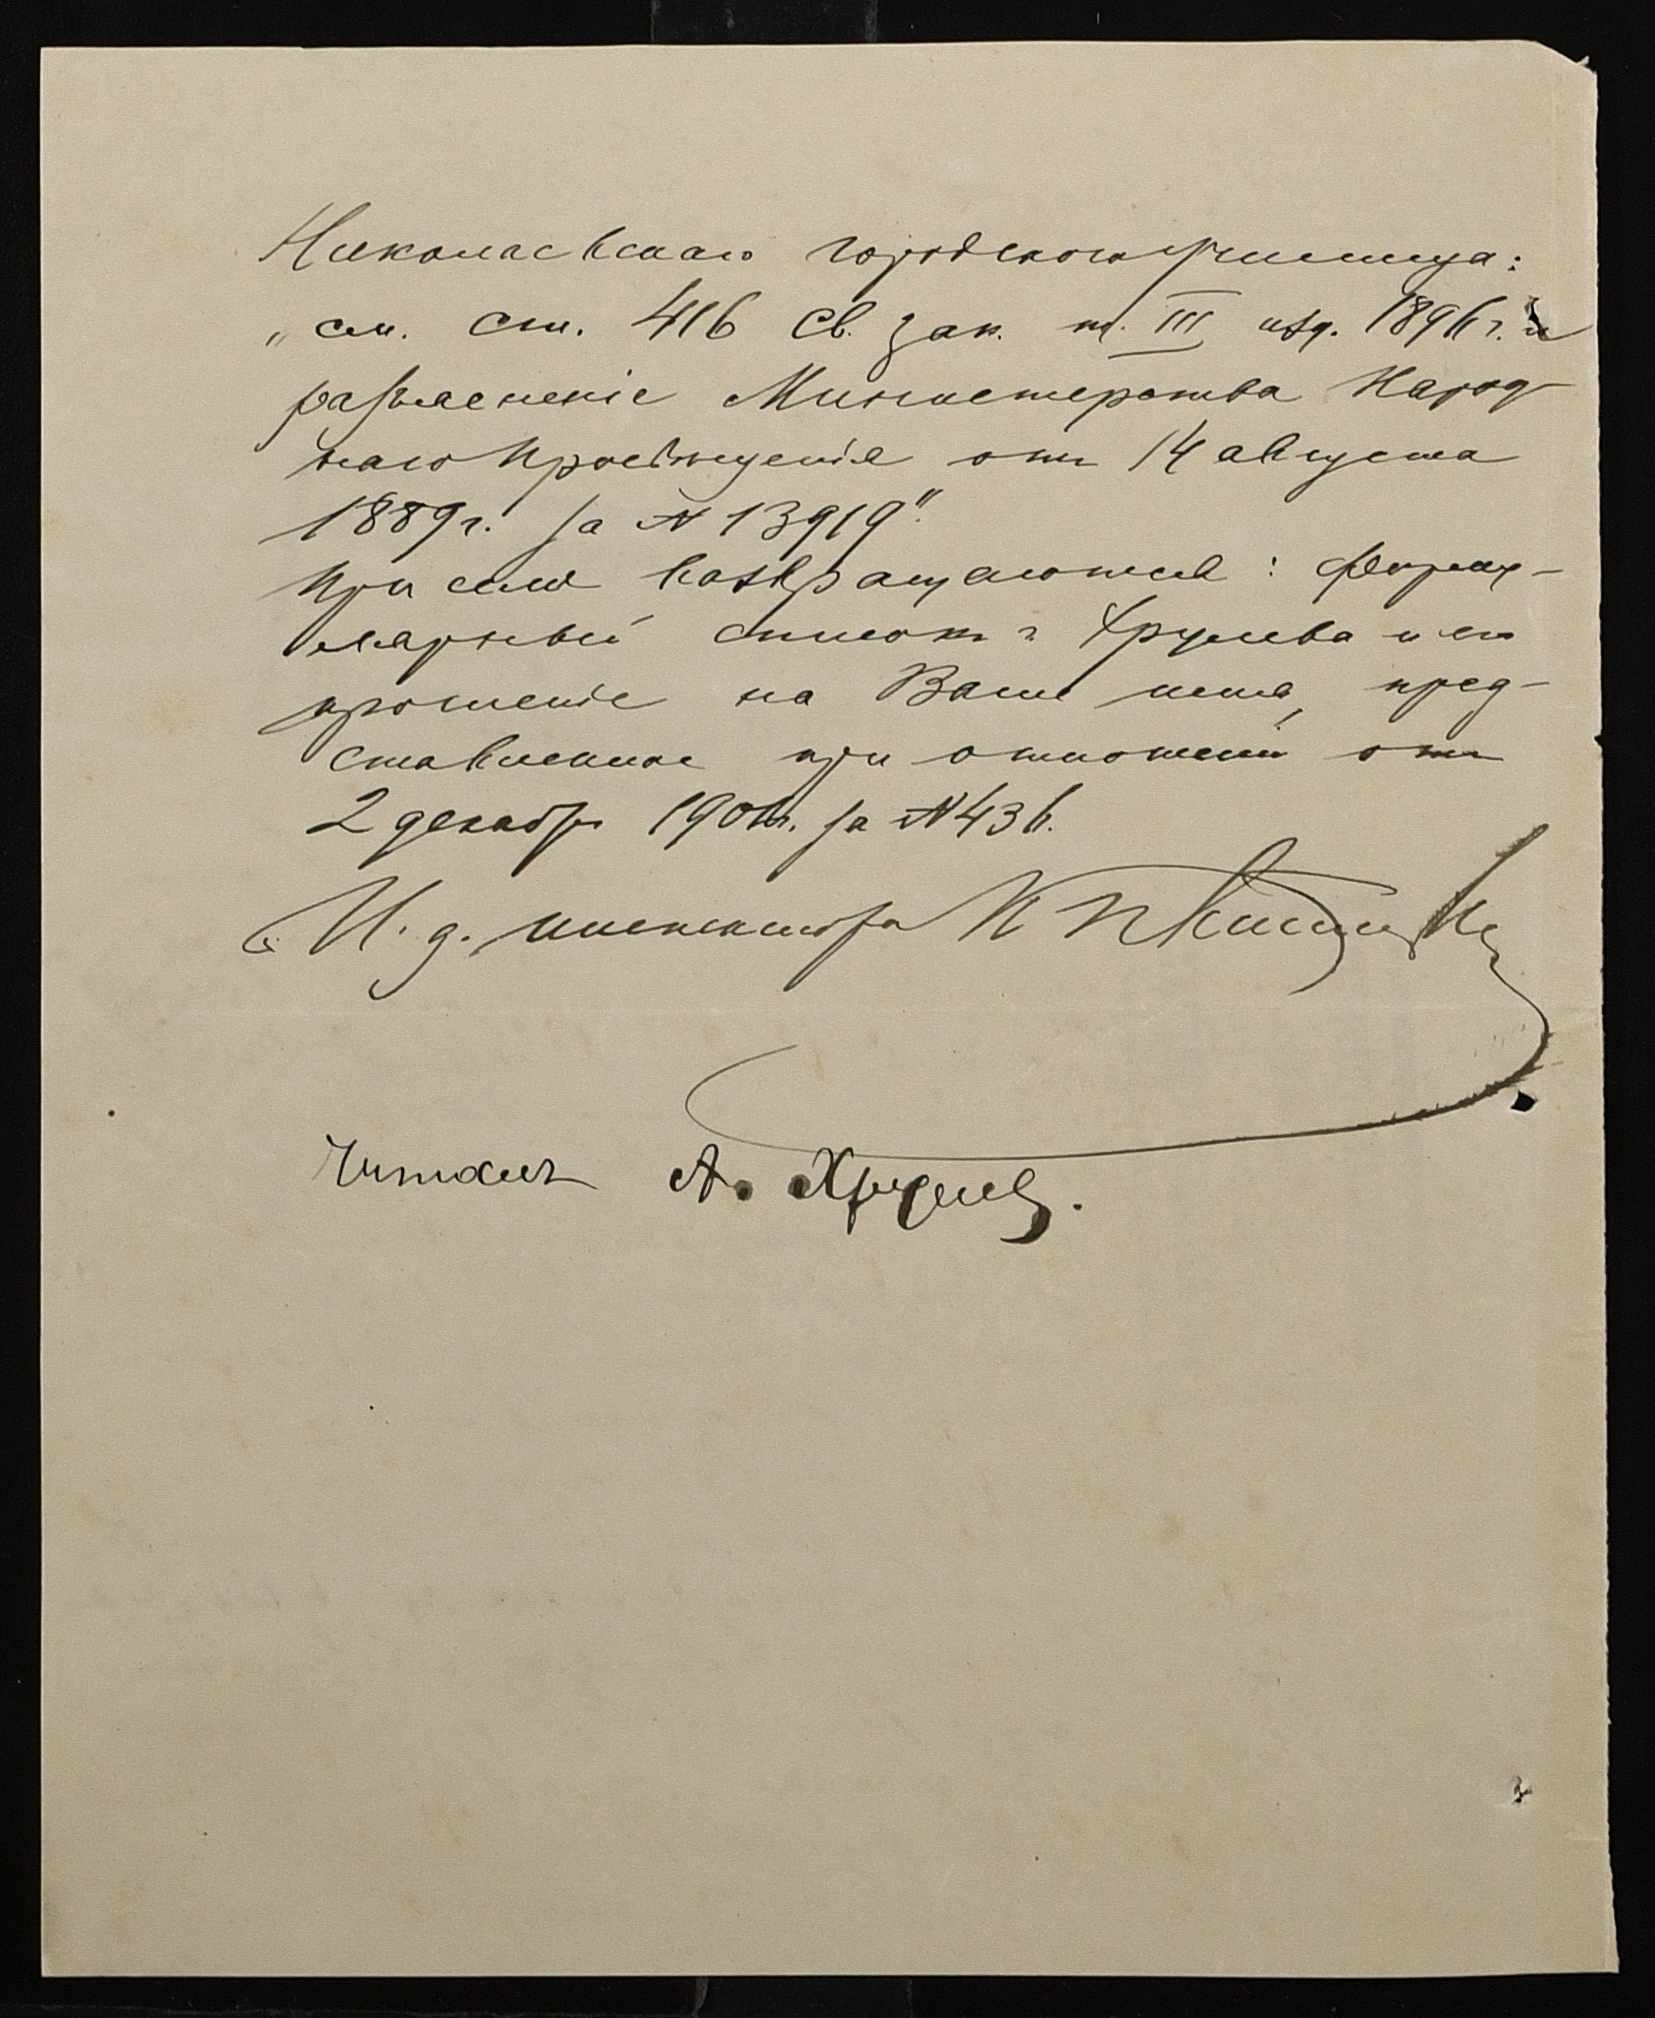 Николаевскаго городского училища:
„см. ст. 416 Св. зак. т. III изд. 1896 г. и
разъясненіе Министерства Народ-
наго Просвѣщенія отъ 14 августа
1889 г. за № 13919".
При семъ возвращаются: форму-
лярный списокъ г. Хрулева и его
прошеніе на Ваше имя, пред-
ставленное при отношеніи отъ
2 декабря г. за № 436.
И. д. инспектора
Читалъ А. Хрулевъ.